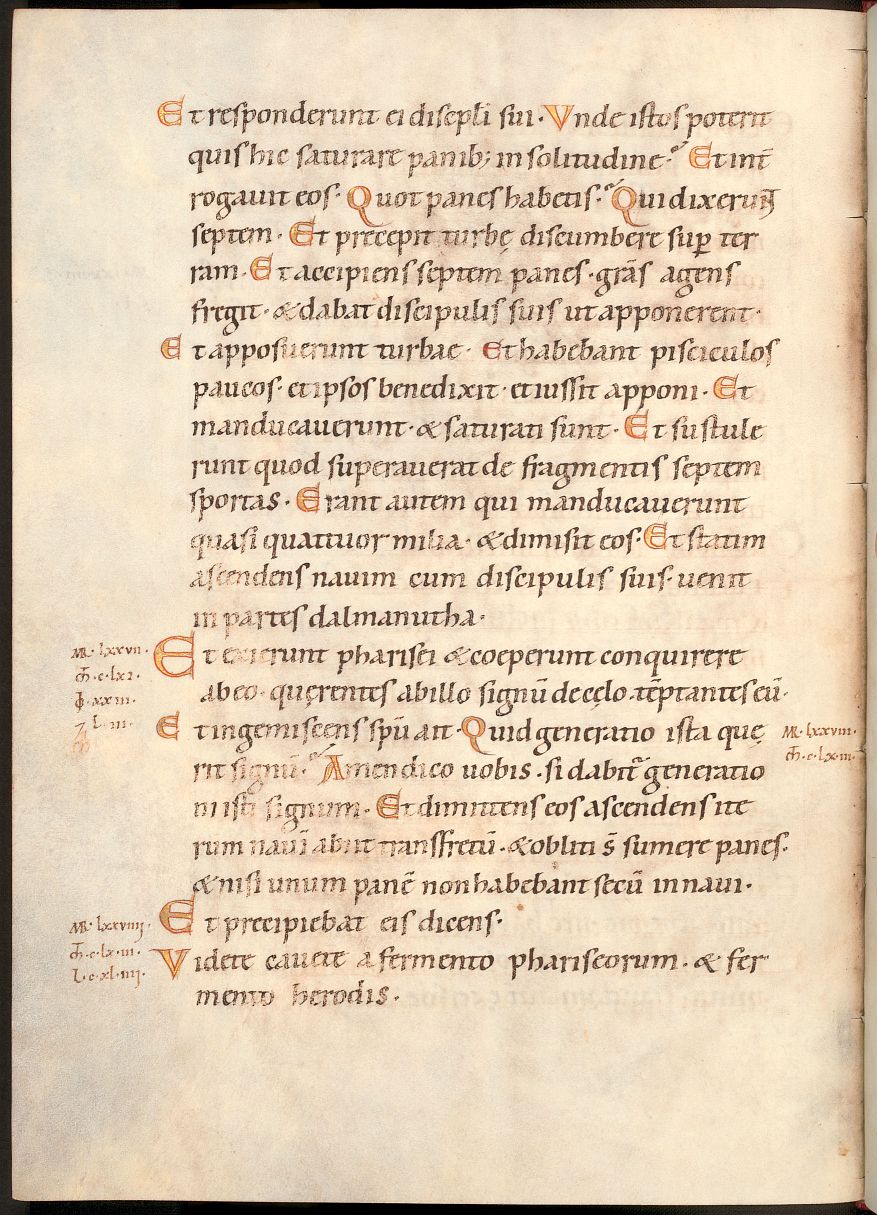 Et responderunt ei discpli sui · Vnde istos poterit
quis hic saturare panib; in solitudine · Et int̄
rogauit eos · Quot panes habetis · Qui dixerunt
septem · Et precepit turbę discumbere sup̄ ter
ram · Et accipiens septem panes · grās agens
fregit · & dabat discipulis suis ut apponerent ·
Et apposuerunt turbae · Et habebant pisciculos
paucos · et ipsos benedixit · et iussit apponi · Et
manducauerunt · & saturati sunt · Et sustule
runt quod superauerat de fragmentis septem
sportas · Erant autem qui manducauerunt
quasi quattuor milia · & dimisit eos · Et statim
ascendens nauim cum discipulis suis · uenit
in partes dalmanutha ·
MR · lxxvii ·
m̄ · c · lxi ·
Et exierunt pharisei & coeperunt conquirere
ab eo · querentes ab illo signū de cęlo · tēptantes eū ·
Et ingemiscens spū ait · Quid generatio ista quę
rit signū · Amen dico uobis · si dabit̄ generatio
ni isti signum · Et dimittens eos ascendens ite
rum nauī abiit trans fretū · & obliti s̄ sumere panes ·
& nisi unum panē non habebant secū in naui ·
MR · lxxviii ·
m̄ · c · lx · iii ·
Et precipiebat eis dicens ·
Videte cauete a fermento phariseorum · & fer
mento herodis ·
MR · lxxviiii ·
m̄ · c · lx · iii ·
L · c · xl · iiii ·